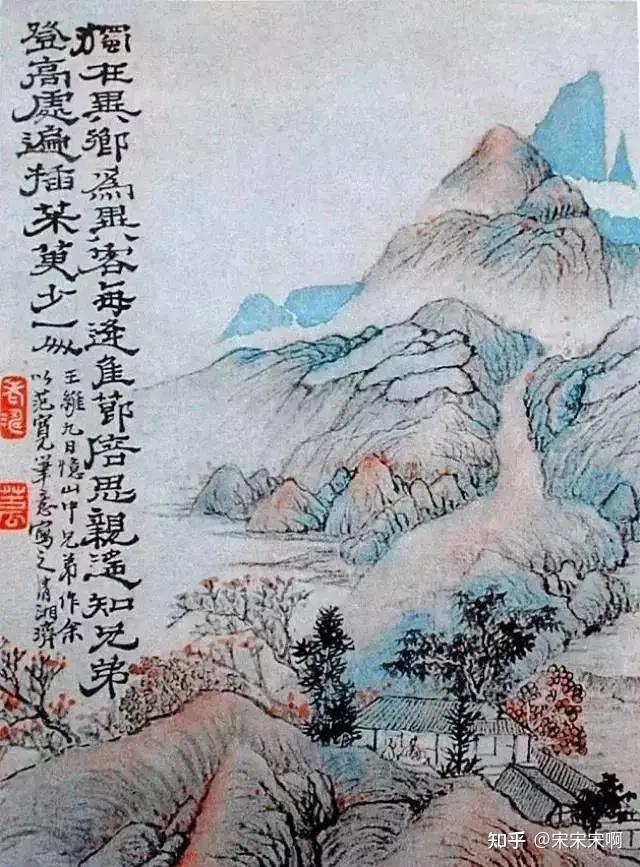 獨在異鄉為異客每逢佳節倍思親遙知兄弟
登高處遍插茱萸少一人
王維九日憶山中兄弟作余
以范寬筆意寫之清湘濟
知乎 @宋宋宋啊